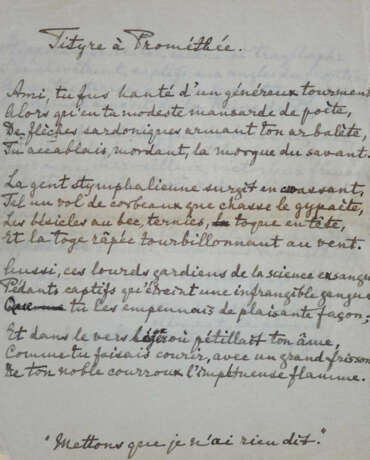 Tityre à Prométhée.
Ami, tu fus hanté d'un généreux tourment
Alors qu'en ta modeste mansarde de poète,
De flèches sardoniques armant ton arbalète,
Tu accablais, mordant, la morgue du savant.
La gent stymphalienne surgit en croassant,
Tel un vol de corbeaux que chasse le gypaète,
Les bésicles au bec, ternies, la toque en tête,
Et la toge râpée tourbillonnant au vent.
Aussi, ces lourds gardiens de la science exsangue
Pédants captifs qu'étreint une infrangible gangue
Que tu les empennais de plaisante façon;
Et dans le vers léger où pétillait ton âme,
Comme tu faisais courir, avec un grand frisson
De ton noble courroux l'impétueuse flamme.
"Mettons que je n'ai rien dit."